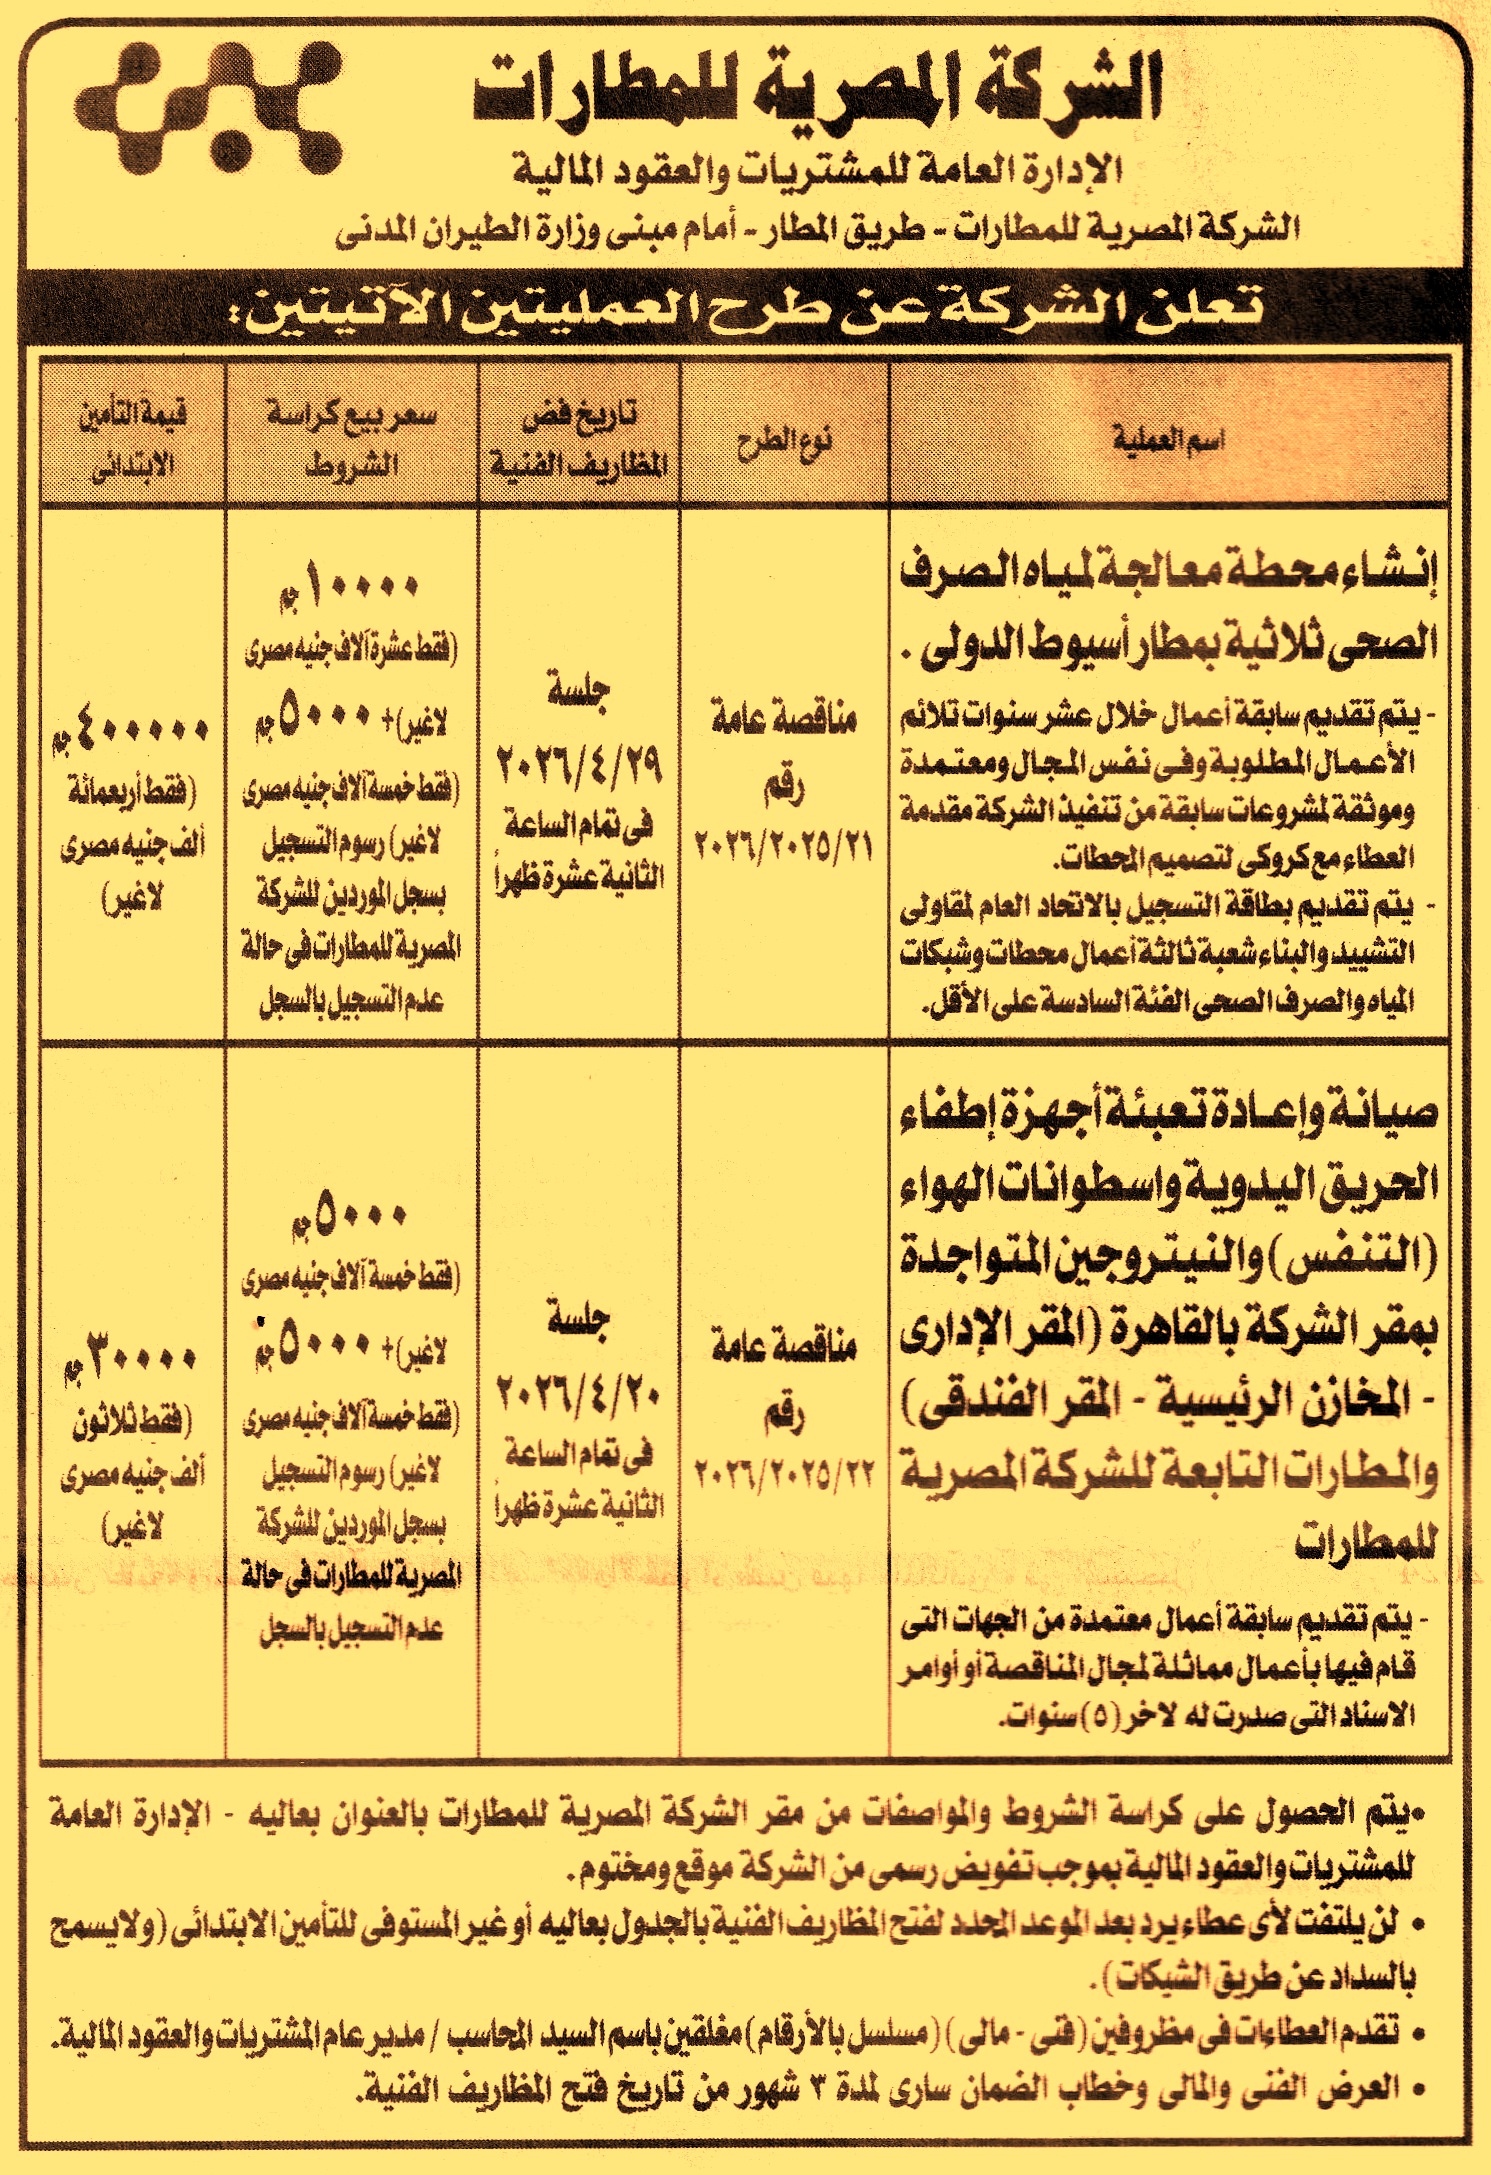 الشركة المصرية للمطارات
الإدارة العامة للمشتريات والعقود المالية
الشركة المصرية للمطارات - طريق المطار - أمام مبنى وزارة الطيران المدنى
تعلن الشركة عن طرح العمليتين الآتيتين:
اسم العملية
نوع الطرح
تاريخ فض
المظاريف الفنية
سعر بيع كراسة
الشروط
قيمة التأمين
الابتدائى
إنشاء محطة معالجة لمياه الصرف
الصحى ثلاثية بمطار أسيوط الدولى .
- يتم تقديم سابقة أعمال خلال عشر سنوات تلائم
الأعمال المطلوبة وفى نفس المجال ومعتمدة
وموثقة لمشروعات سابقة من تنفيذ الشركة مقدمة
العطاء مع كروكى لتصميم المحطات.
- يتم تقديم بطاقة التسجيل بالاتحاد العام لمقاولى
التشييد والبناء شعبة ثالثة أعمال محطات وشبكات
المياه والصرف الصحى الفئة السادسة على الأقل.
مناقصة عامة
رقم
٢٠٢٦/٢٠٢٥/٢١
جلسة
٢٠٢٦/٤/٢٩
فى تمام الساعة
الثانية عشرة ظهراً
١٠٠٠٠ جم
(فقط عشرة آلاف جنيه مصرى
لاغير)+ ٥٠٠٠ جم
(فقط خمسة آلاف جنيه مصرى
لاغير) رسوم التسجيل
بسجل الموردين للشركة
المصرية للمطارات فى حالة
عدم التسجيل بالسجل
٤٠٠٠٠٠ جم
(فقط أربعمائة
ألف جنيه مصرى
لاغير)
صيانة وإعادة تعبئة أجهزة إطفاء
الحريق اليدوية واسطوانات الهواء
(التنفس) والنيتروجين المتواجدة
بمقر الشركة بالقاهرة (المقر الإدارى
- المخازن الرئيسية - المقر الفندقى)
والمطارات التابعة للشركة المصرية
للمطارات
- يتم تقديم سابقة أعمال معتمدة من الجهات التى
قام فيها بأعمال مماثلة لمجال المناقصة أو أوامر
الاسناد التى صدرت له لاخر (٥) سنوات.
مناقصة عامة
رقم
٢٠٢٦/٢٠٢٥/٢٢
جلسة
٢٠٢٦/٤/٢٠
فى تمام الساعة
الثانية عشرة ظهراً
٥٠٠٠ جم
(فقط خمسة آلاف جنيه مصرى
لاغير)+ ٥٠٠٠ جم
(فقط خمسة آلاف جنيه مصرى
لاغير) رسوم التسجيل
بسجل الموردين للشركة
المصرية للمطارات فى حالة
عدم التسجيل بالسجل
٣٠٠٠٠ جم
(فقط ثلاثون
ألف جنيه مصرى
لاغير)
• يتم الحصول على كراسة الشروط والمواصفات من مقر الشركة المصرية للمطارات بالعنوان بعاليه - الإدارة العامة
للمشتريات والعقود المالية بموجب تفويض رسمى من الشركة موقع ومختوم.
• لن يلتفت لأى عطاء يرد بعد الموعد المحدد لفتح المظاريف الفنية بالجدول بعاليه أو غير المستوفى للتأمين الابتدائى (ولا يسمح
بالسداد عن طريق الشيكات).
• تقدم العطاءات فى مظروفين (فنى - مالى) (مسلسل بالأرقام) مغلقين باسم السيد المحاسب / مدير عام المشتريات والعقود المالية.
• العرض الفنى والمالى وخطاب الضمان سارى لمدة ٣ شهور من تاريخ فتح المظاريف الفنية.